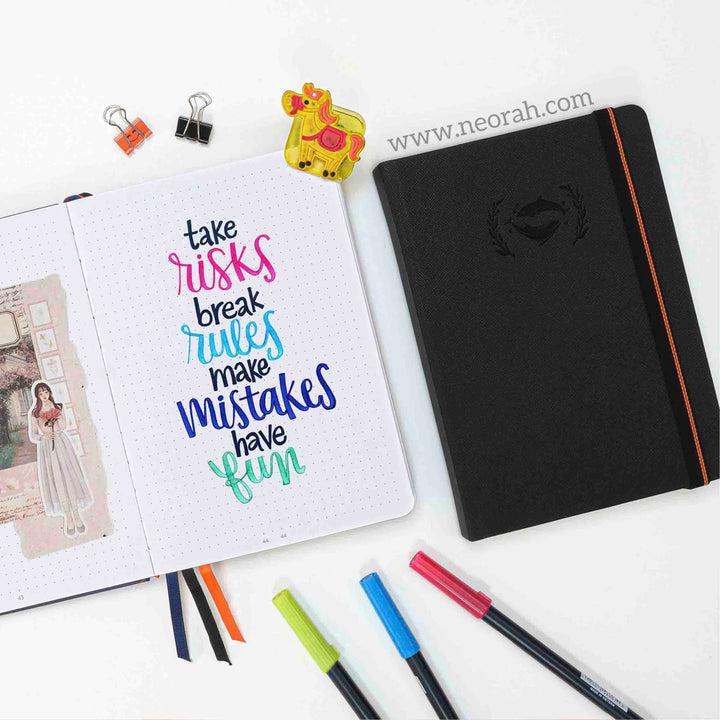 www.neorah.com
take
risks
break
rules
make
mistakes
have
fun
44 44
43